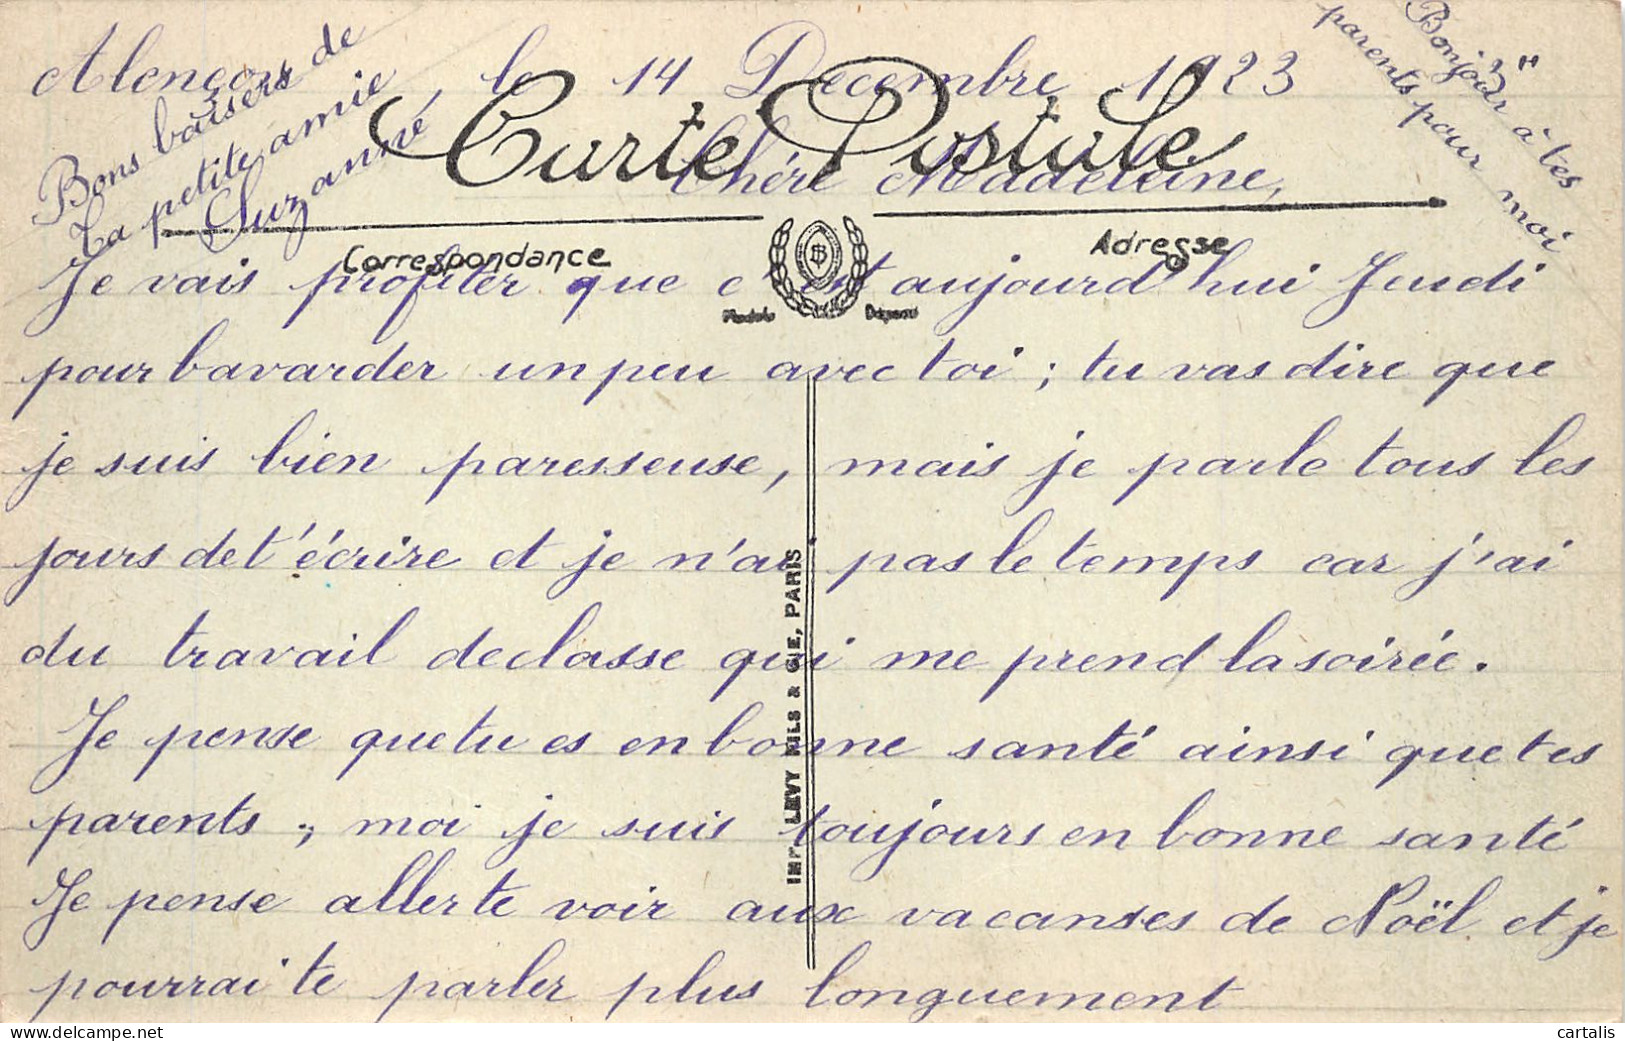 Alençon, le 14 Décembre 1923
Bons baisers de
ta petite amie
Suzanne
"Bonjour" à tes
parents pour moi
Carte Postale
Chère Madeleine,
Correspondance
Adresse
Je vais profiter que c'est aujourd'hui Jeudi
pour bavarder un peu avec toi ; tu vas dire que
je suis bien paresseuse, mais je parle tous les
jours de t'écrire et je n'ai pas le temps car j'ai
du travail de classe qui me prend la soirée.
Je pense que tu es en bonne santé ainsi que tes
parents ; moi je suis toujours en bonne santé
Je pense aller te voir aux vacanses de Noël et je
pourrai te parler plus longuement
IMP. LEVY FILS & CIE, PARIS
https://www.delcampe.net
cartalis